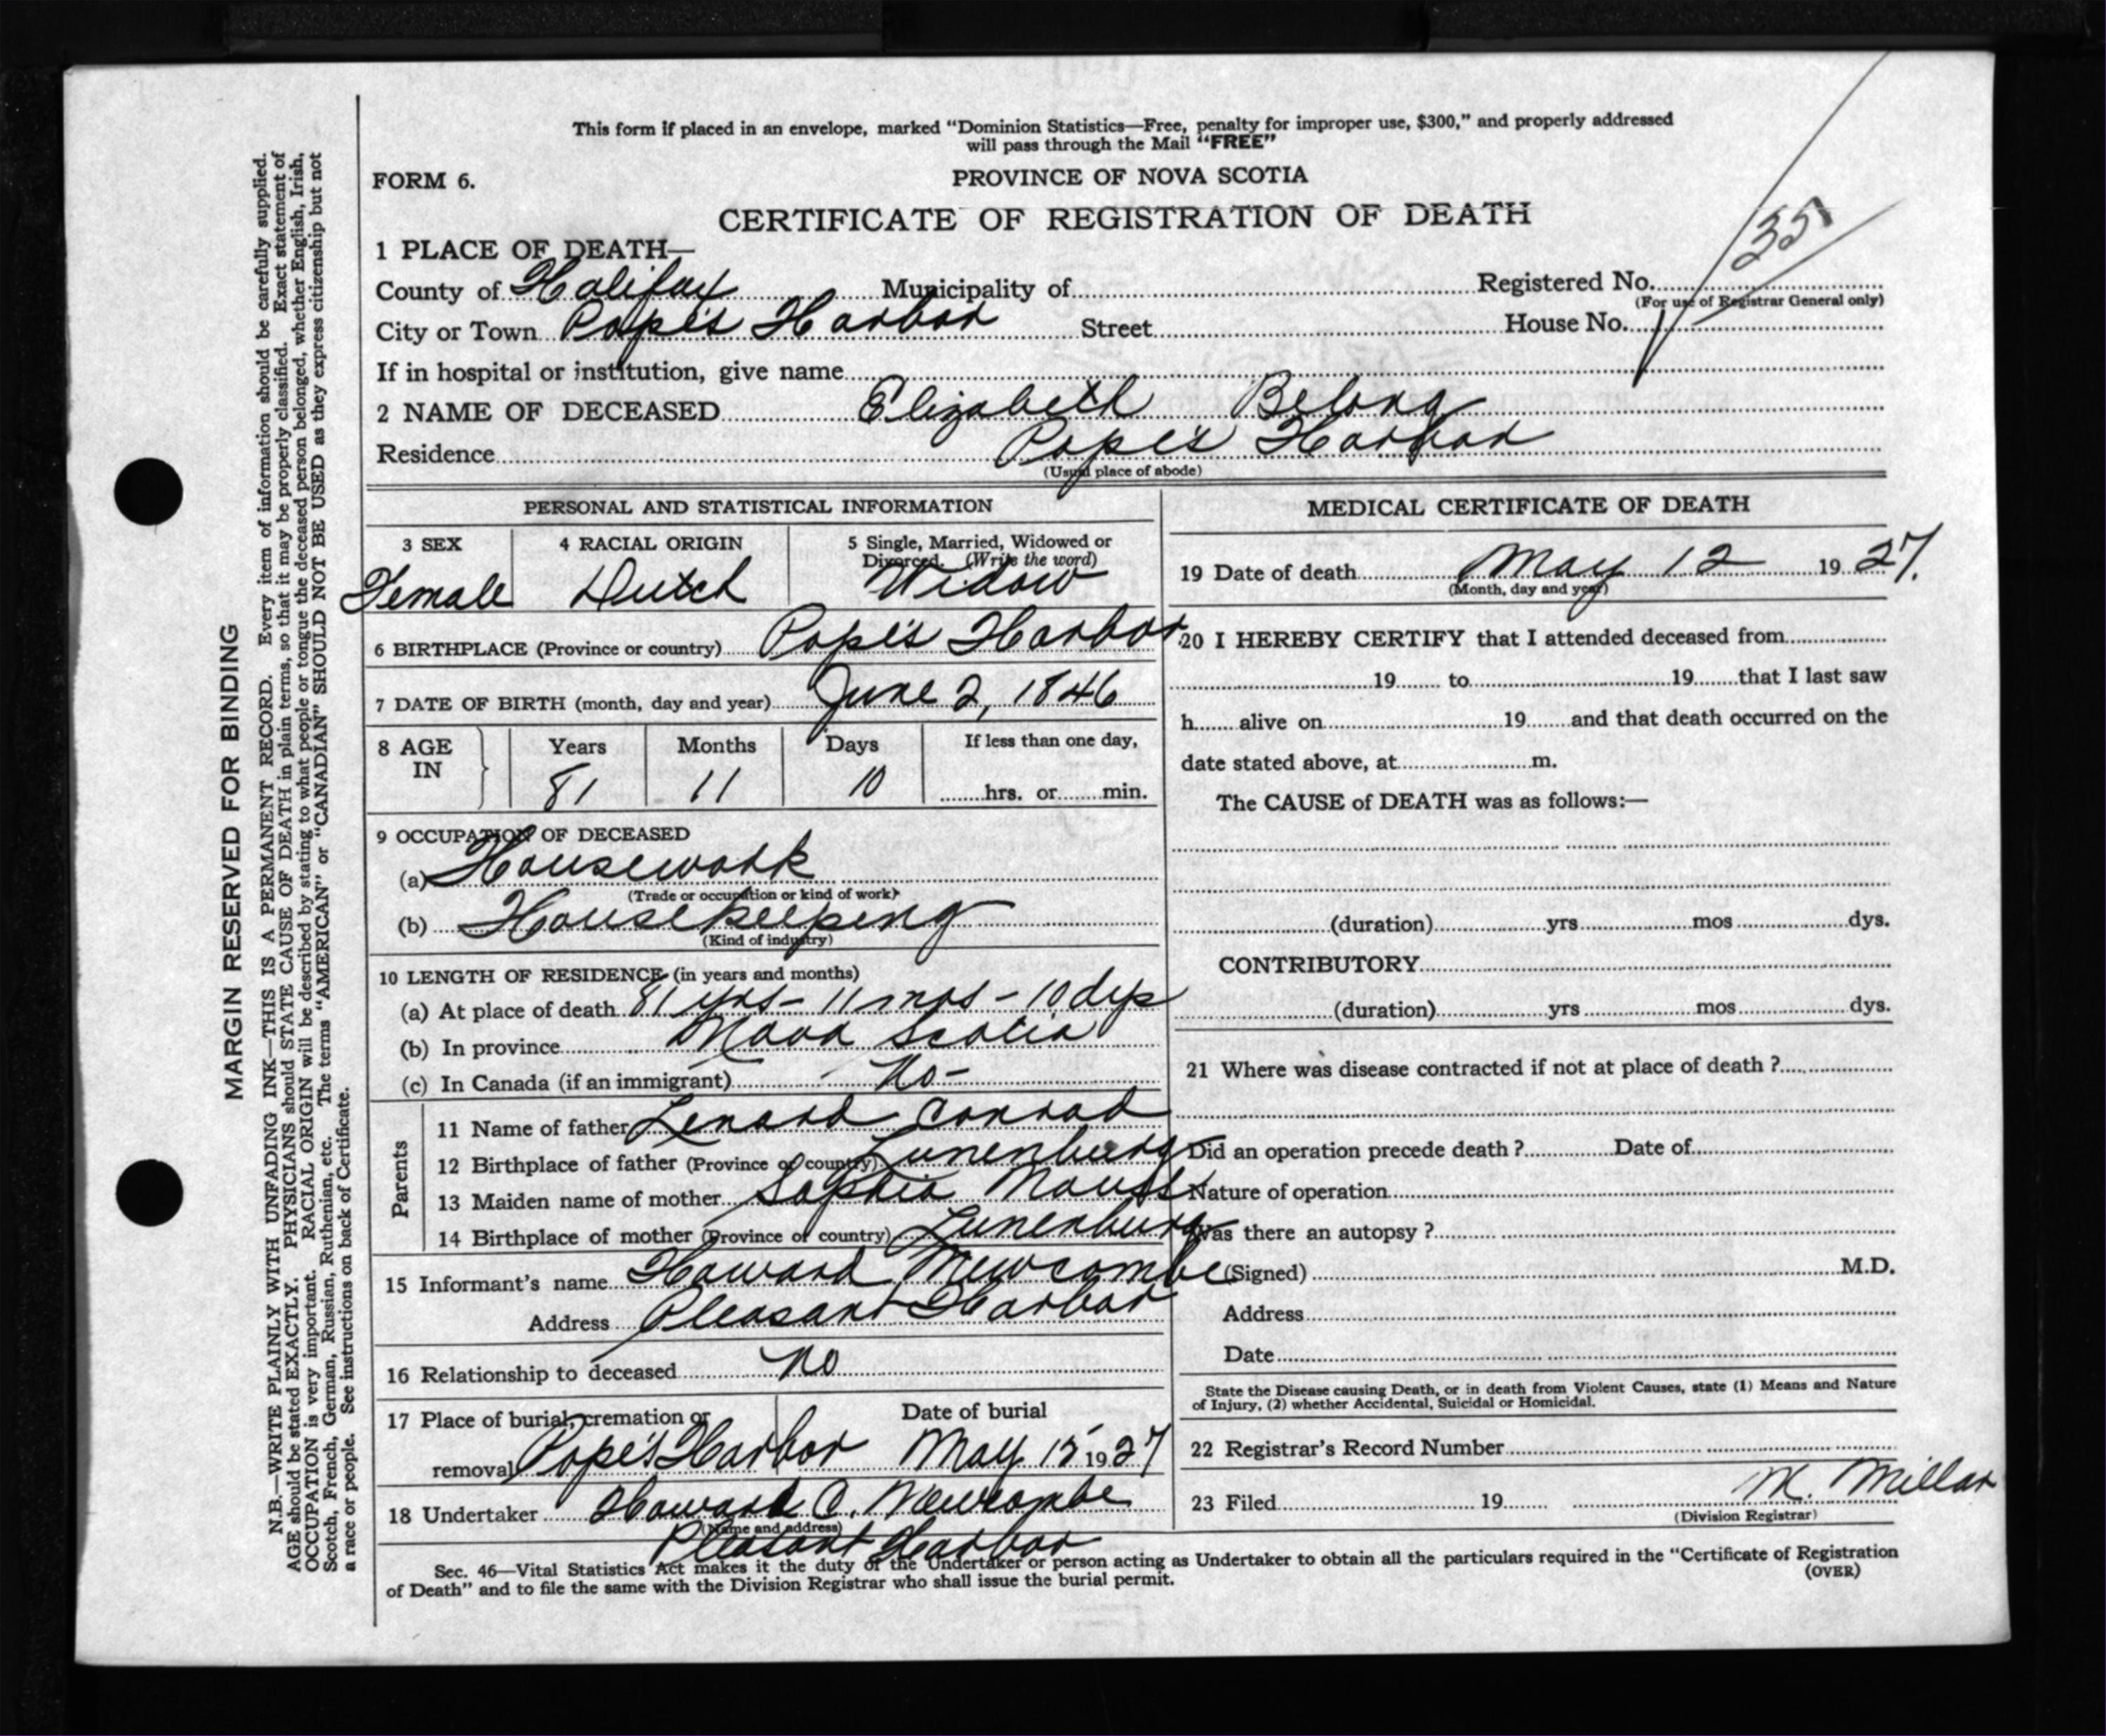 This form if placed in an envelope, marked "Dominion Statistics—Free, penalty for improper use, $300," and properly addressed
will pass through the Mail "FREE"
FORM 6.
PROVINCE OF NOVA SCOTIA
CERTIFICATE OF REGISTRATION OF DEATH
1 PLACE OF DEATH—
County of Halifax Municipality of Registered No. 351
(For use of Registrar General only)
City or Town Pope's Harbor Street House No.
If in hospital or institution, give name
2 NAME OF DECEASED Elizabeth Belong
Residence Pope's Harbor
(Usual place of abode)
PERSONAL AND STATISTICAL INFORMATION
3 SEX Female
4 RACIAL ORIGIN Dutch
5 Single, Married, Widowed or
Divorced. (Write the word)
Widow
6 BIRTHPLACE (Province or country) Pope's Harbor
7 DATE OF BIRTH (month, day and year) June 2, 1846
8 AGE IN Years 81 Months 11 Days 10 If less than one day,
hrs. or min.
9 OCCUPATION OF DECEASED
(a) Housework
(Trade or occupation or kind of work)
(b) Housekeeping
(Kind of industry)
10 LENGTH OF RESIDENCE (in years and months)
(a) At place of death 81 yrs - 11 mos - 10 dys
(b) In province Nova Scotia
(c) In Canada (if an immigrant) - No -
Parents
11 Name of father Lenard Conrad
12 Birthplace of father (Province or country) Lunenburg
13 Maiden name of mother Sophia
14 Birthplace of mother (Province or country) Lunenburg
15 Informant's name Howard Newcombe
Address Pleasant Harbor
16 Relationship to deceased no
17 Place of burial, cremation or
removal Pope's Harbor
Date of burial
May 15 1927
18 Undertaker Howard C. Newcombe
(Name and address)
Pleasant Harbor
MEDICAL CERTIFICATE OF DEATH
19 Date of death May 12 1927.
(Month, day and year)
20 I HEREBY CERTIFY that I attended deceased from
19 to 19 that I last saw
h alive on 19 and that death occurred on the
date stated above, at m.
The CAUSE of DEATH was as follows:—
(duration) yrs mos dys.
CONTRIBUTORY
(duration) yrs mos dys.
21 Where was disease contracted if not at place of death ?
Did an operation precede death ? Date of
Nature of operation
Was there an autopsy ?
(Signed) M.D.
Address
Date
State the Disease causing Death, or in death from Violent Causes, state (1) Means and Nature
of Injury, (2) whether Accidental, Suicidal or Homicidal.
22 Registrar's Record Number
23 Filed 19 M. Millar
(Division Registrar)
Sec. 46—Vital Statistics Act makes it the duty of the Undertaker or person acting as Undertaker to obtain all the particulars required in the "Certificate of Registration
of Death" and to file the same with the Division Registrar who shall issue the burial permit.
(OVER)
MARGIN RESERVED FOR BINDING
N.B.—WRITE PLAINLY WITH UNFADING INK—THIS IS A PERMANENT RECORD. Every item of information should be carefully supplied.
AGE should be stated EXACTLY. PHYSICIANS should STATE CAUSE OF DEATH in plain terms, so that it may be properly classified. Exact statement of
OCCUPATION is very important. RACIAL ORIGIN will be described by stating to what people or tongue the deceased person belonged, whether English, Irish,
Scotch, French, German, Russian, Ruthenian, etc. The terms "AMERICAN" or "CANADIAN" SHOULD NOT BE USED as they express citizenship but not
a race or people. See instructions on back of Certificate.